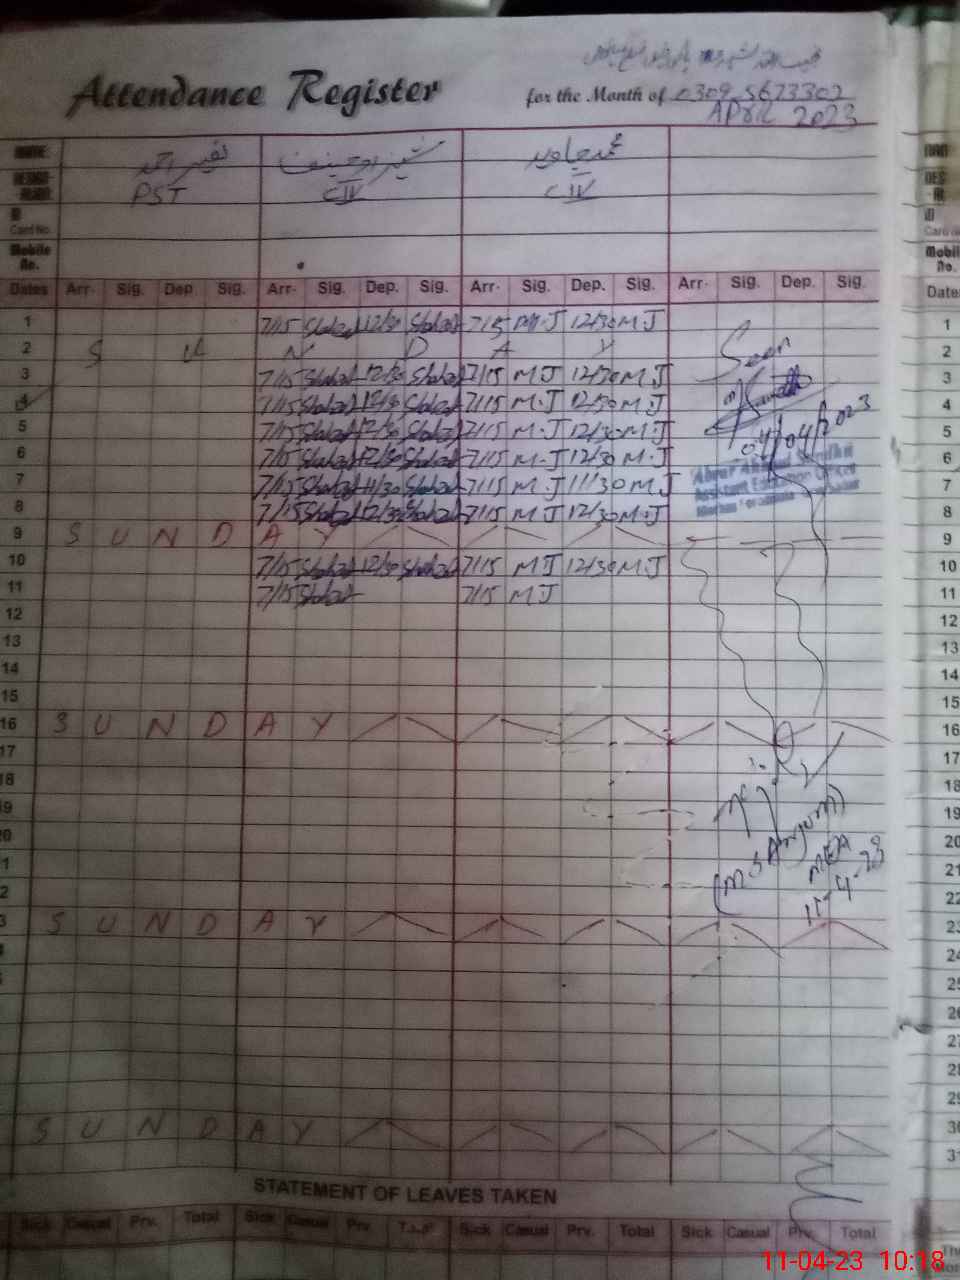 Attendance Register
for the Month of 0309 5673302
APRIL 2023
NAME: محمد جاوید
PST C IV C IV
ID
Card No.
Mobile
No.
Dates Arr. Sig. Dep. Sig. Arr. Sig. Dep. Sig. Arr. Sig. Dep. Sig. Arr. Sig. Dep. Sig.
1 7/15 12/30 7/15 M.J 12/30 M J 1
2 S U N D A Y 2
3 7/15 12/30 7/15 M J 12/30 M J 3
Seen
4 7/15 12/30 7/15 M.J 12/30 M J 4
5 7/15 12/30 7/15 M.J 12/30 M J 5
04/04/2023
6 7/15 12/30 7/15 M.J 12/30 M J 6
7 7/15 11/30 7/15 M J 11/30 M J 7
8 7/15 12/30 7/15 M J 12/30 M J 8
9 S U N D A Y 9
10 7/15 12/30 7/15 M J 12/30 M J 10
11 7/15 7/15 M J 11
12 12
13 13
14 14
15 15
16 S U N D A Y 16
17 17
18 18
19 19
20 20
21 21
(M S Anjum)
MEA
11-4-23
22 22
23 S U N D A Y 23
24
25
26
27
28
29
S U N D A Y 30
31
STATEMENT OF LEAVES TAKEN
Sick Casual Prv. Total Sick Casual Prv. Total Sick Casual Prv. Total Sick Casual Prv. Total
11-04-23 10:18